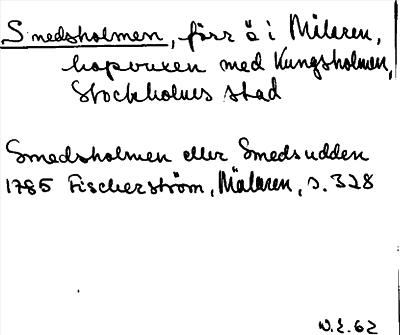 Smedsholmen, förr ö i Mälaren,
hopvuxen med Kungsholmen,
Stockholms stad
Smedsholmen eller Smedsudden
1785 Fischerström, Mälaren, s. 328
W.E. 62